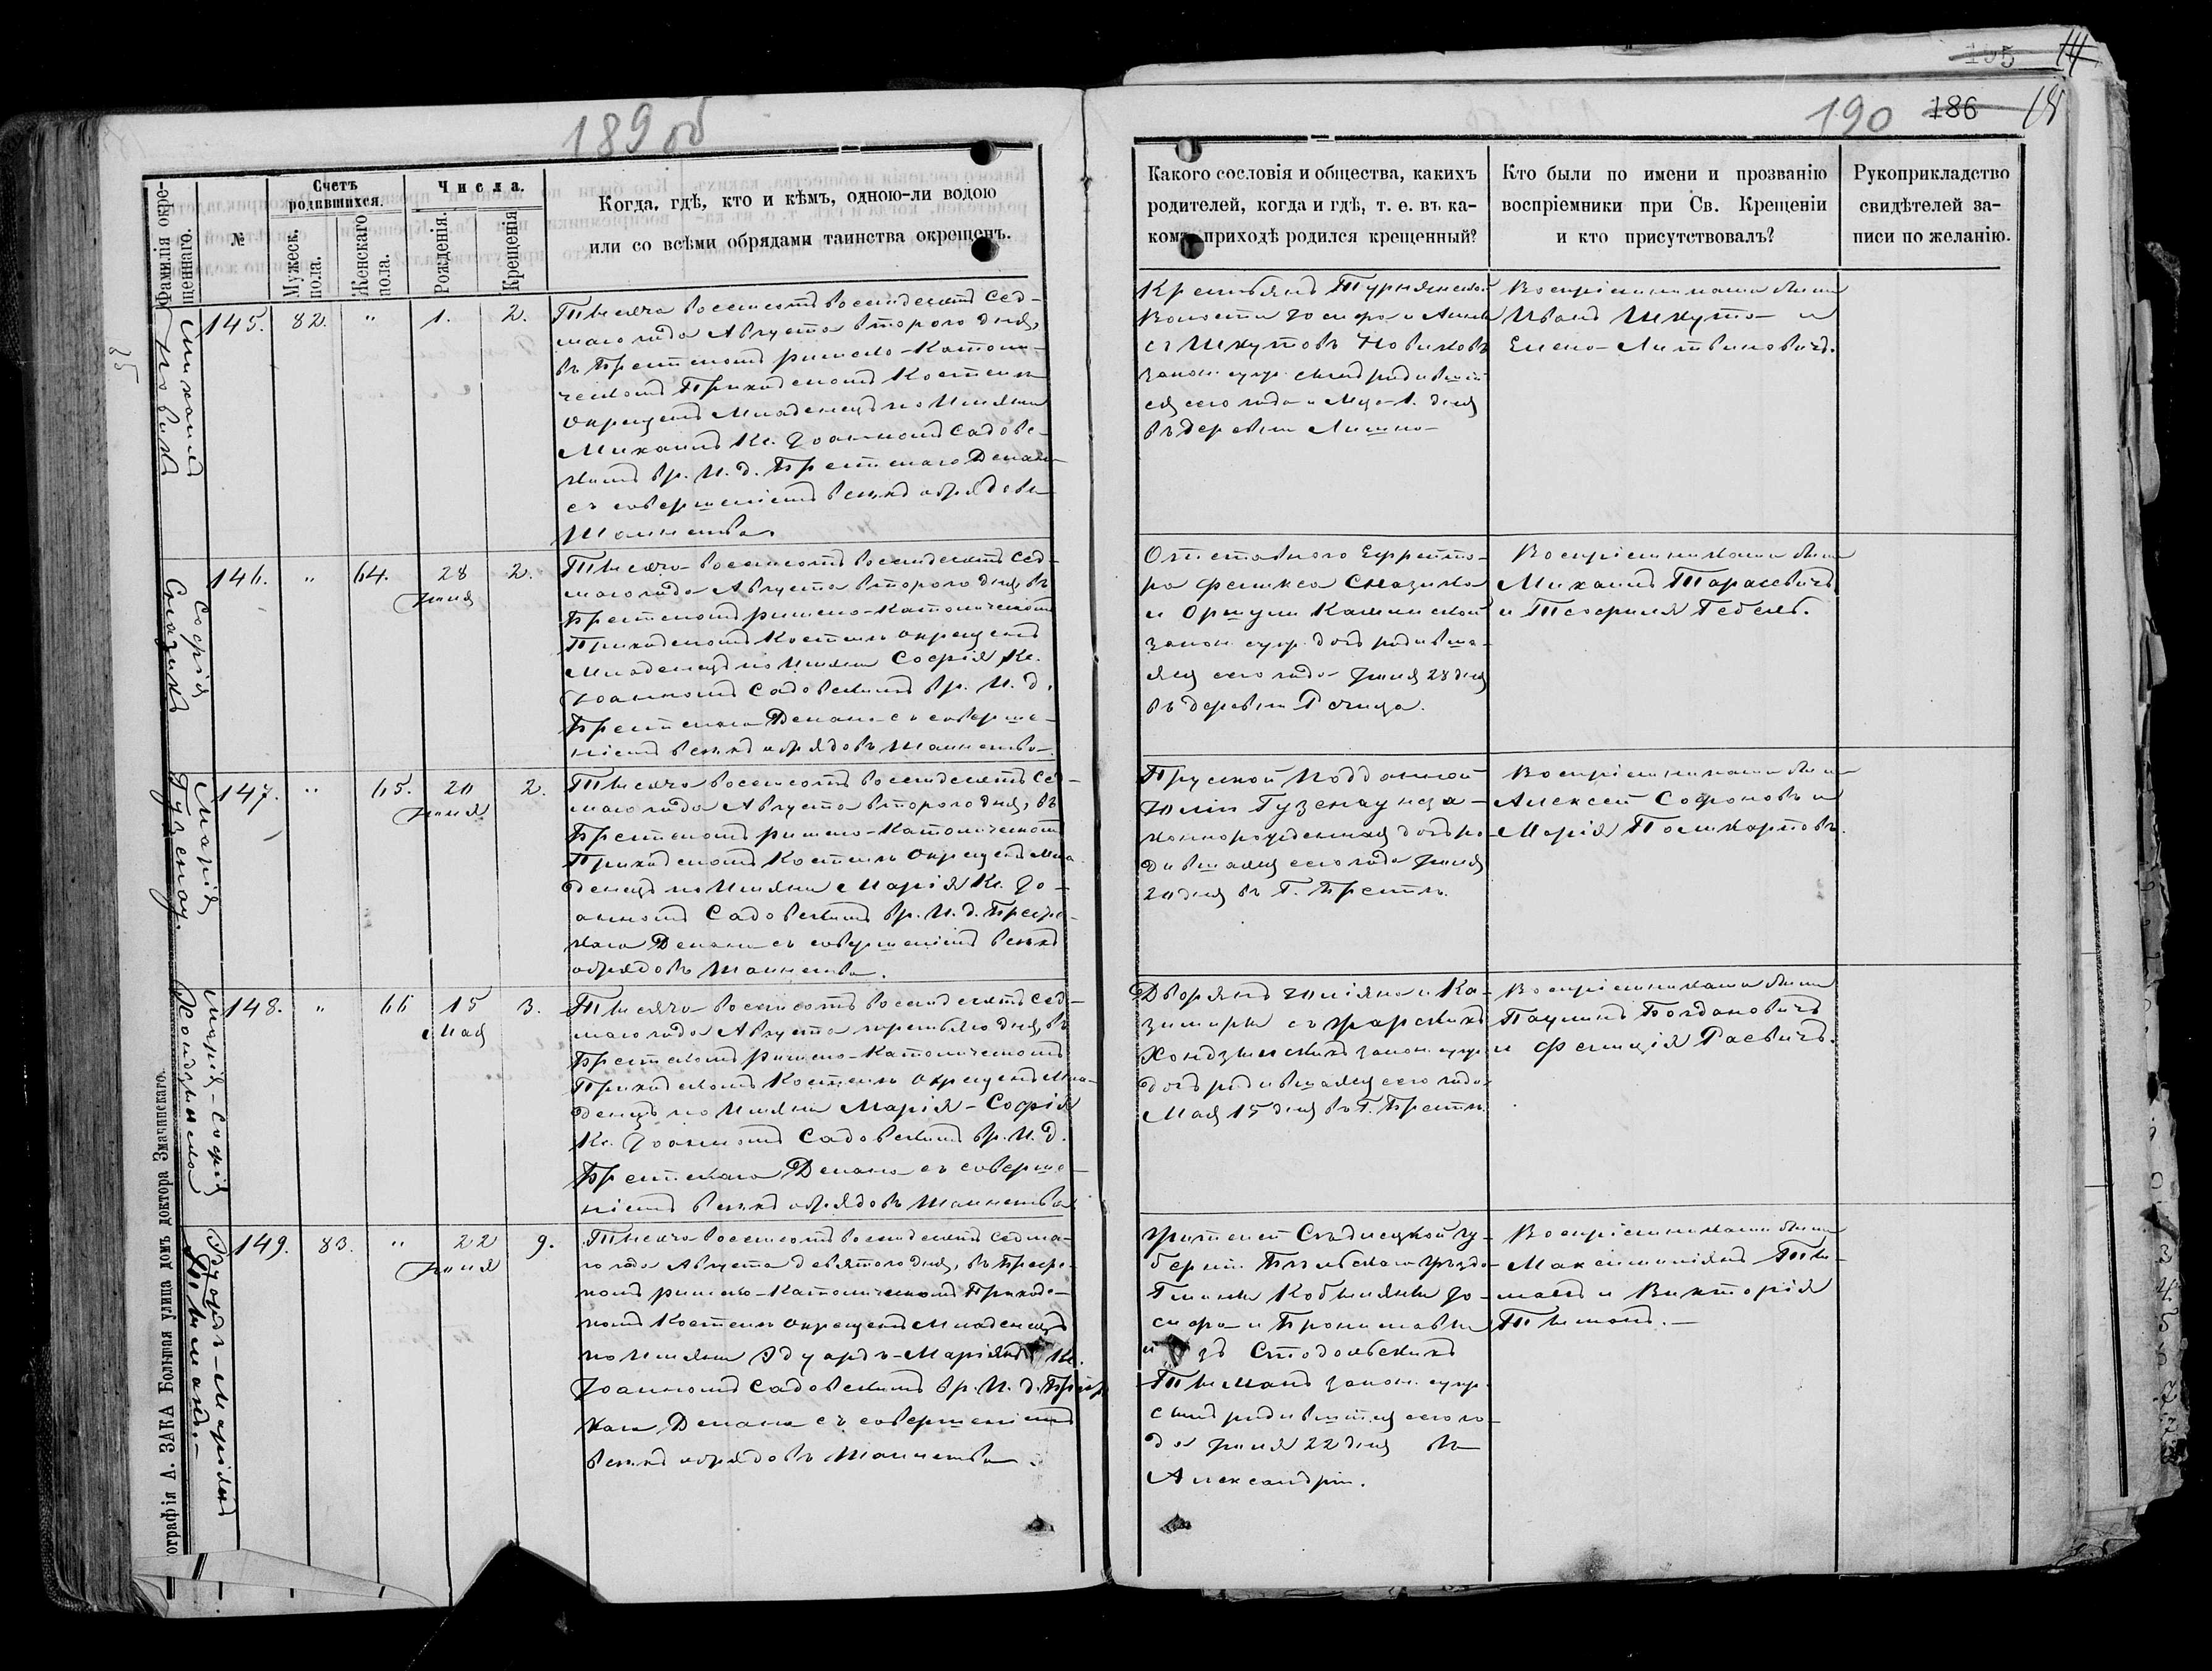 189 об
Фамилія окре-
щеннаго.
№
Счетъ
родившихся.
Мужеск.
пола.
Женскаго
пола.
Числа.
Рожденія.
Крещенія
Когда, гдѣ, кто и кѣмъ, одною-ли водою
или со всѣми обрядами таинства окрещенъ.
Михаилъ
Новикъ
145. 82. " 1. 2.
Тысяча восемсотъ восемдесятъ сед-
маго года Августа второго дня,
въ Брестскомъ римско-Католи-
ческомъ Приходскомъ Костелѣ
окрещенъ Младенецъ по Имяни
Михаилъ Кс. Іоанномъ Садовс-
кимъ вр. И. д. Брестскаго Декана
съ совершеніемъ всѣхъ обрядовъ
Таинства.
Софія
146. " 64. 28 2.
Іюня
Тысяча восемсотъ восемдесятъ сед-
маго года Августа второго дня, въ
Брестскомъ римско-Католическомъ
Приходскомъ Костелѣ окрещенъ
Младенецъ по Имяни Софія Кс.
Іоанномъ Садовскимъ вр. И. д.
Брестскаго Декана съ соверше-
ніемъ всѣхъ обрядовъ таинства
Марія
Гузенау.
147. " 65. 20 2.
Іюня
Тысяча восемсотъ восемдесятъ сед-
маго года Августа второго дня, въ
Брестскомъ римско-Католическомъ
Приходскомъ Костелѣ окрещенъ Мла-
денецъ по Имяни Марія Кс. Іо-
анномъ Садовскимъ вр. И. д. Брест-
скаго Декана съ совершеніемъ всѣхъ
обрядовъ таинства.
Марія-Софія
148. " 66 15 3.
Мая
Тысяча восемсотъ восемдесятъ сед-
маго года Августа третьяго дня, въ
Брестскомъ римско-Католическомъ
Приходскомъ Костелѣ окрещенъ Мла-
денецъ по Имяни Марія-Софія
Кс. Іоанномъ Садовскимъ вр. И. д.
Брестскаго Декана съ соверше-
ніемъ всѣхъ обрядовъ таинства
Эдуардъ-Маріянъ
Тышманъ.
149. 83. " 22 9.
Іюня
Тысяча восемсотъ восемдесятъ седма-
го года Августа девятого дня, въ Брест-
комъ римско-Католическомъ Приходс-
комъ Костелѣ окрещенъ Младенецъ
по Имяни Эдуардъ-Маріянъ Кс.
Іоанномъ Садовскимъ вр. И. д. Брест-
каго Декана съ совершеніемъ
всѣхъ обрядовъ таинства.
ографія А. ЗАКА Большая улица домъ доктора Змачинскаго.
195
190 186
Какого сословія и общества, какихъ
родителей, когда и гдѣ, т. е. въ ка-
комъ приходѣ родился крещенный?
Кто были по имени и прозванію
воспріемники при Св. Крещеніи
и кто присутствовалъ?
Рукоприкладство
свидѣтелей за-
писи по желанію.
Крестьянъ Турнянской
Волости Іосифа и Анны
съ Шкутовъ Новиковъ
закон. супр. сынъ родивший
ся сего года и Мца 1. дня
въ деревни
Воспріемниками были
Иванъ Шкута и
Елена Литвиновичъ.
Отставного Ефрейто-
ра Феликса
и Оршули Каминской
закон. супр. дочь родивша-
яся сего года Іюня 28 дня
въ деревни Речица.
Воспріемниками были
Михаилъ Тарасевичъ
и Теофиля Гебель.
Пруской Подданной
Юліи Гузенау неза-
коннорожденная дочь ро-
дившаяся сего года Іюня
20 дня въ Г. Брестѣ.
Воспріемниками были
Алексей Софоновъ и
Марія Поликарповъ.
Дворянъ Юліяна и Ка-
зимиры съ
закон. супр.
дочь родившаяся сего года
Мая 15 дня въ Г. Брестѣ.
Воспріемниками были
Паулинъ Богдановичъ
и Фелиція Раевичъ.
Жителей Сѣдлецкой гу-
берніи Бѣльскаго уѣзда
Гмины Кобыляны Іо-
сифа и Брониславы
изъ Стодольскихъ
Тышманъ закон. супр.
сынъ родившійся сего го-
да Іюня 22 дня въ
Александріи.
Воспріемниками были
Максимиліянъ Тыш-
манъ и Викторія
Тышманъ.